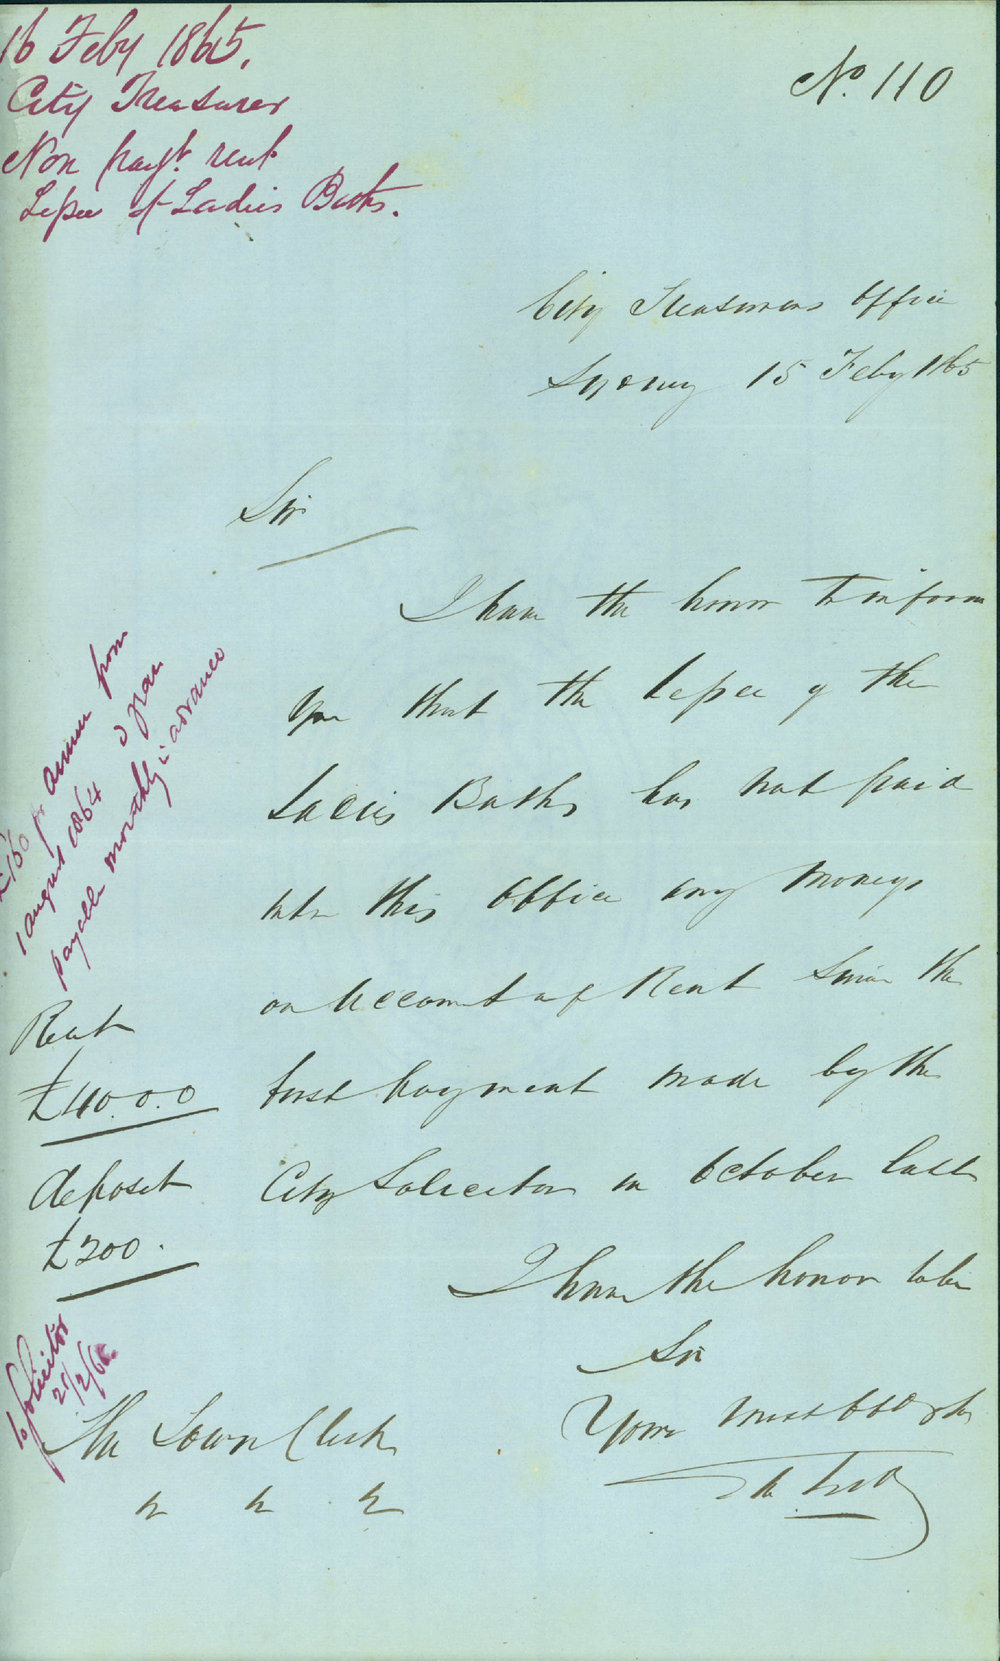 16 Feby 1865.
City Treasurer
Non payt. rent
Lessee of Ladies Baths.
No. 110
City Treasurers Office
Sydney 15 Feby 1865
Sir
I have the honor to inform
you that the Lessee of the
Ladies Baths has not paid
into this Office any moneys
on Account of Rent Since the
first payment made by the
City Solicitor in October last
I have the honor to be
Sir
Your most Obt
The Town Clerk
£160 pr annum from
1 August 1864 3 years
payable monthly in advance
Rent
£40.0.0
deposit
£200.
To Solicitor